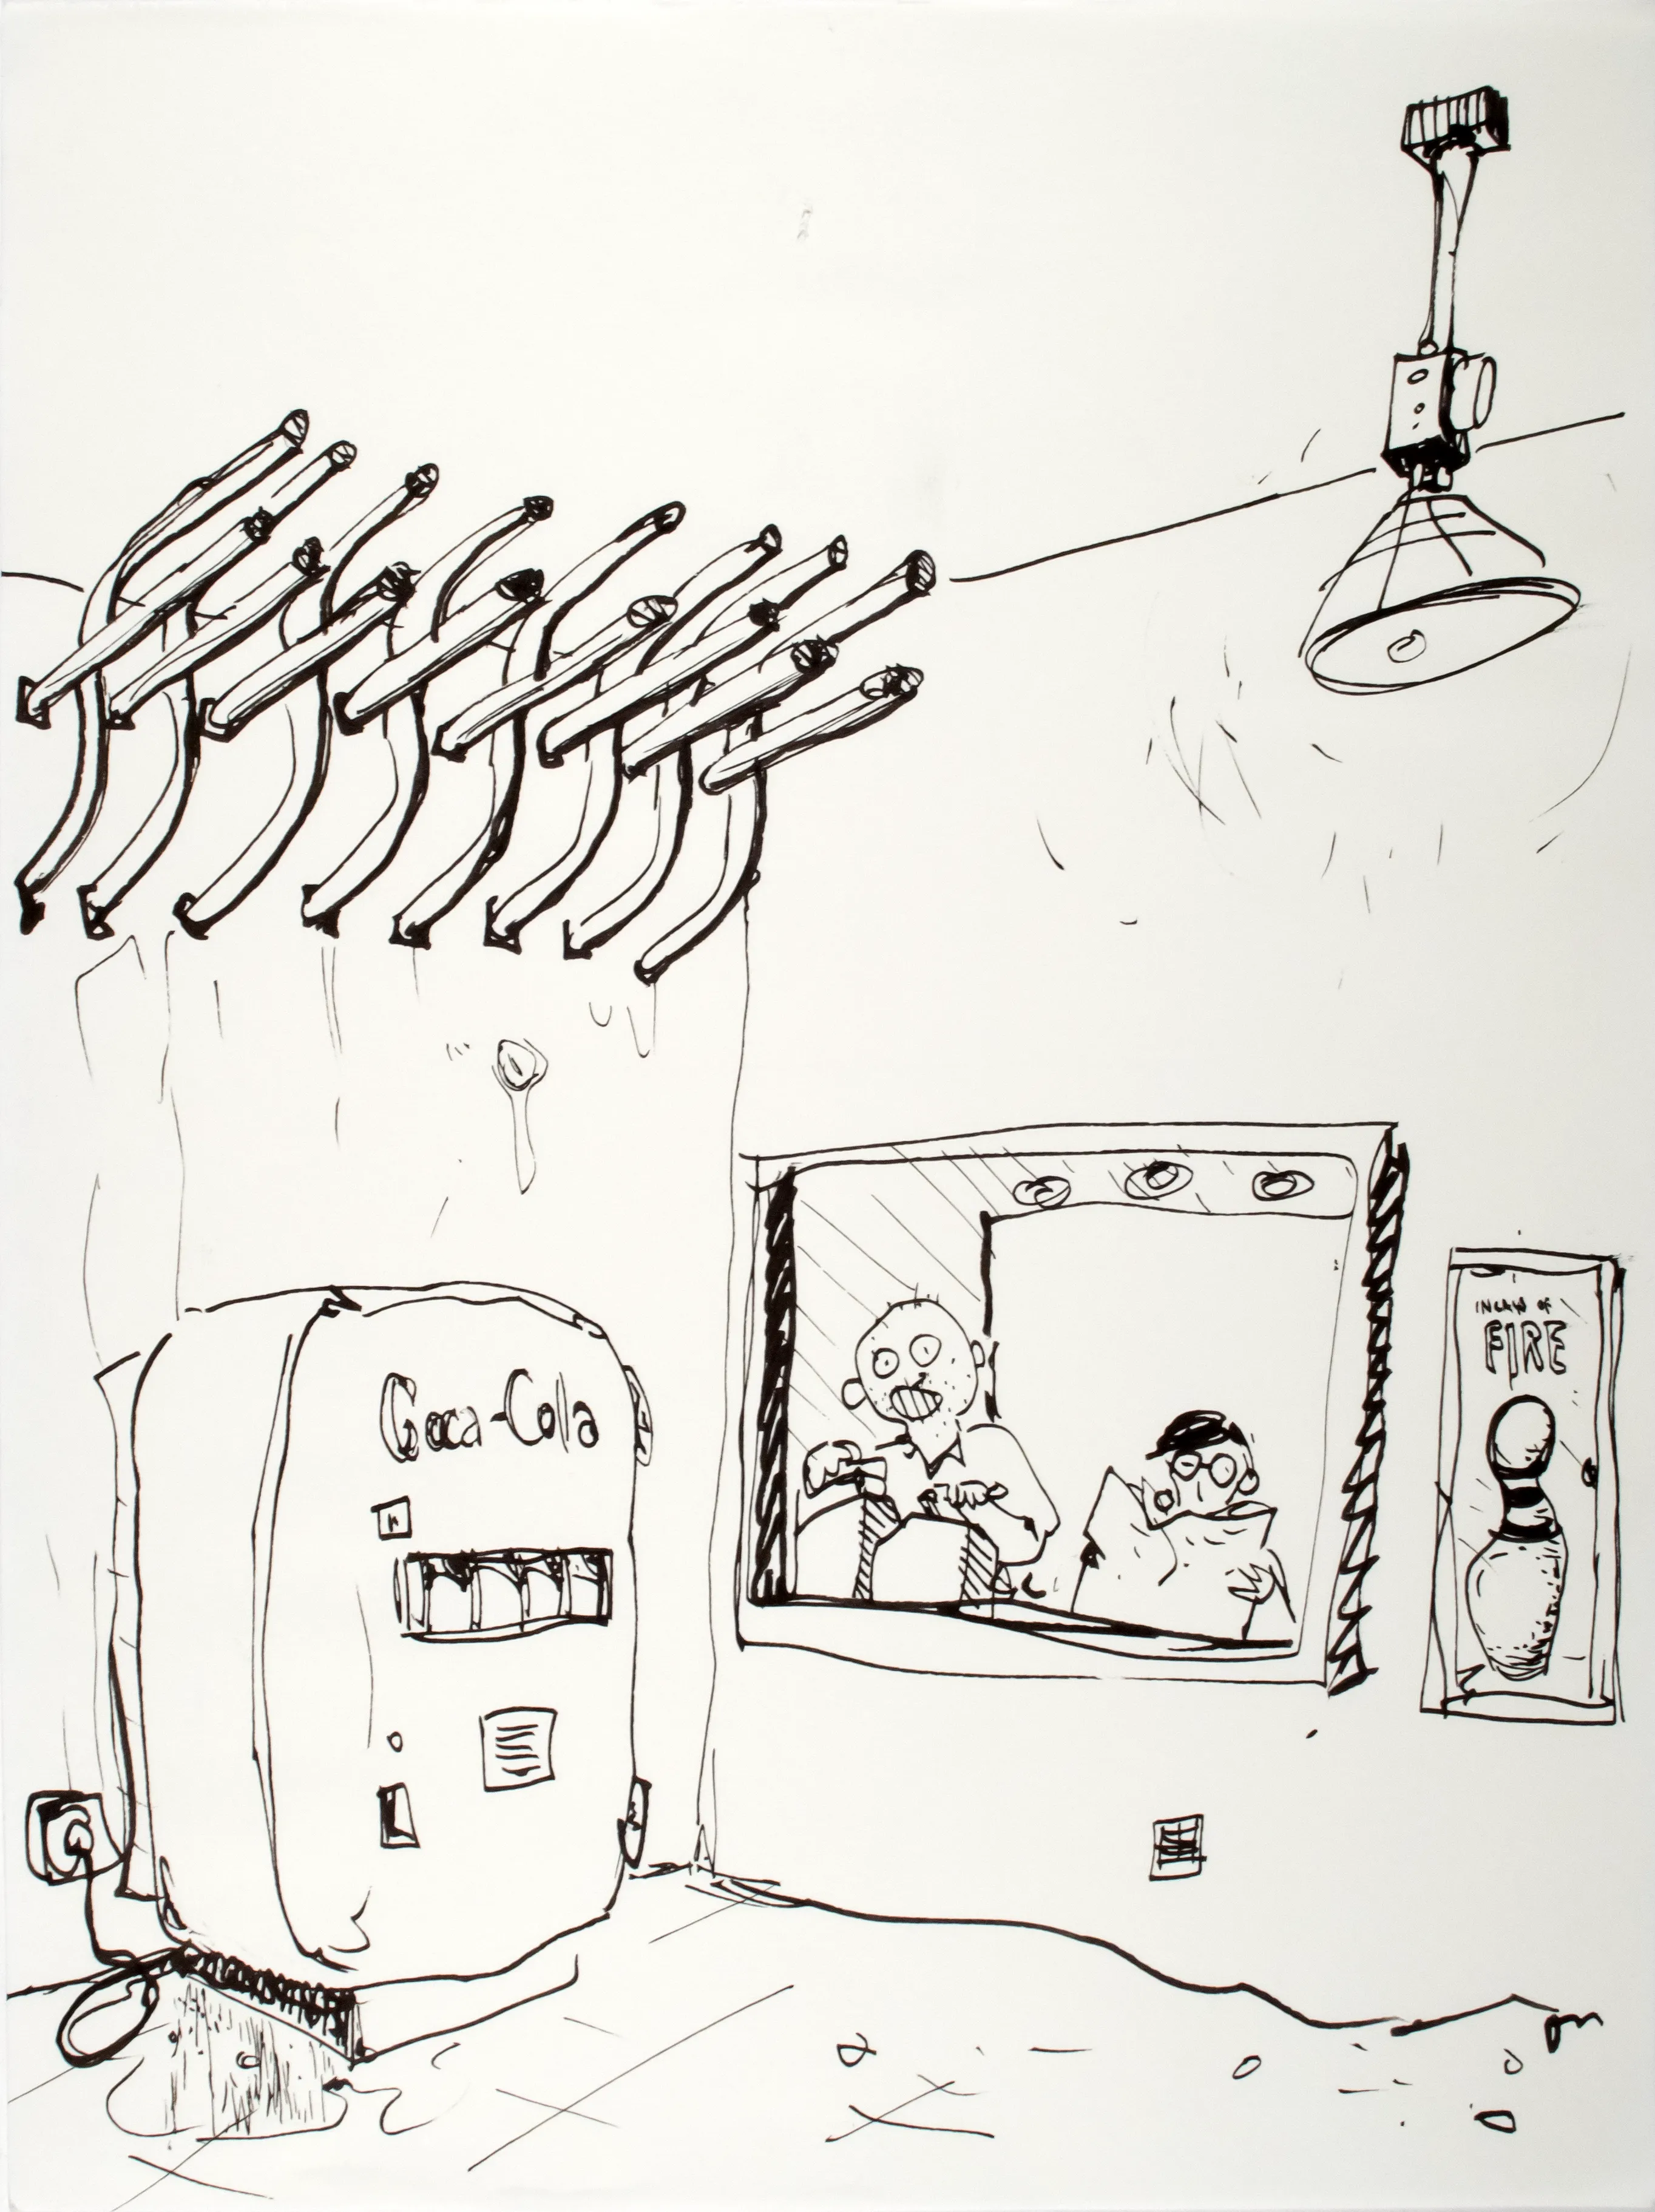 Coca-Cola
IN CASE OF
FIRE